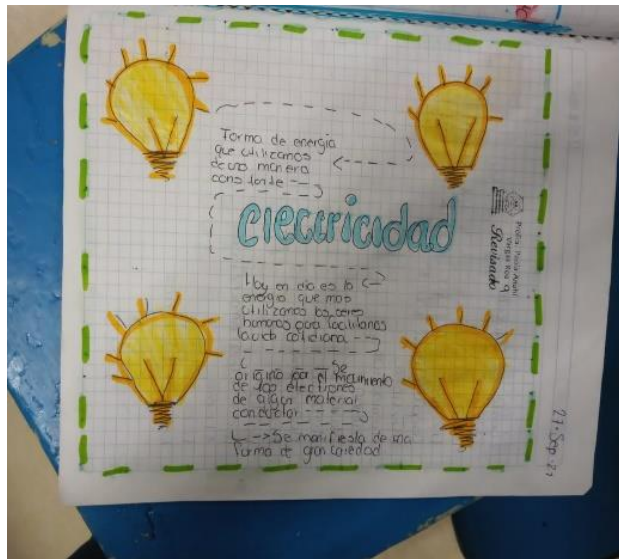 Forma de energia
que utilizamos
de una manera
constante
Electricidad
Hoy en dia es la
energia que mas
utilizamos los seres
humanos para facilitarnos
la vida cotidiana
Se
origina por el movimiento
de los electrones
de algun material
conductor
Se manifiesta de una
forma de gran variedad
Revisado
27-Sep-21